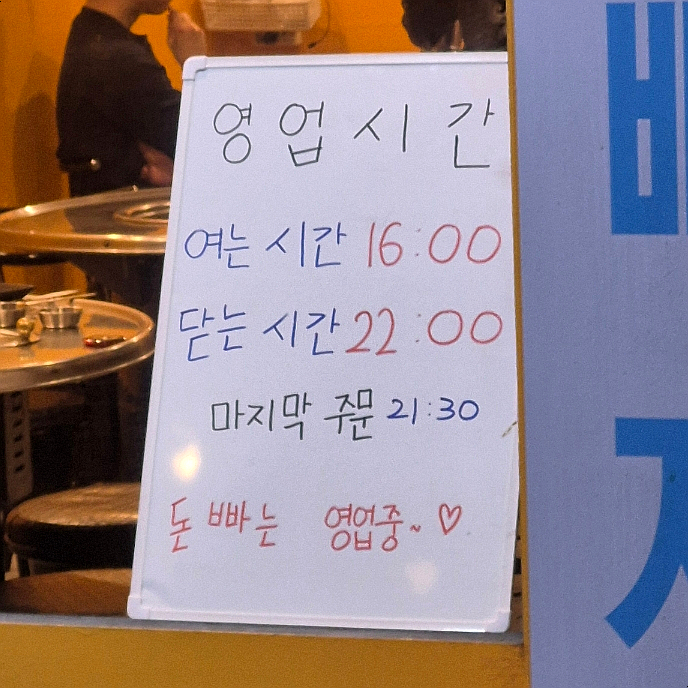 영업시간
여는 시간 16:00
닫는 시간 22:00
마지막 주문 21:30
돈 빠는 영업중~ ♡